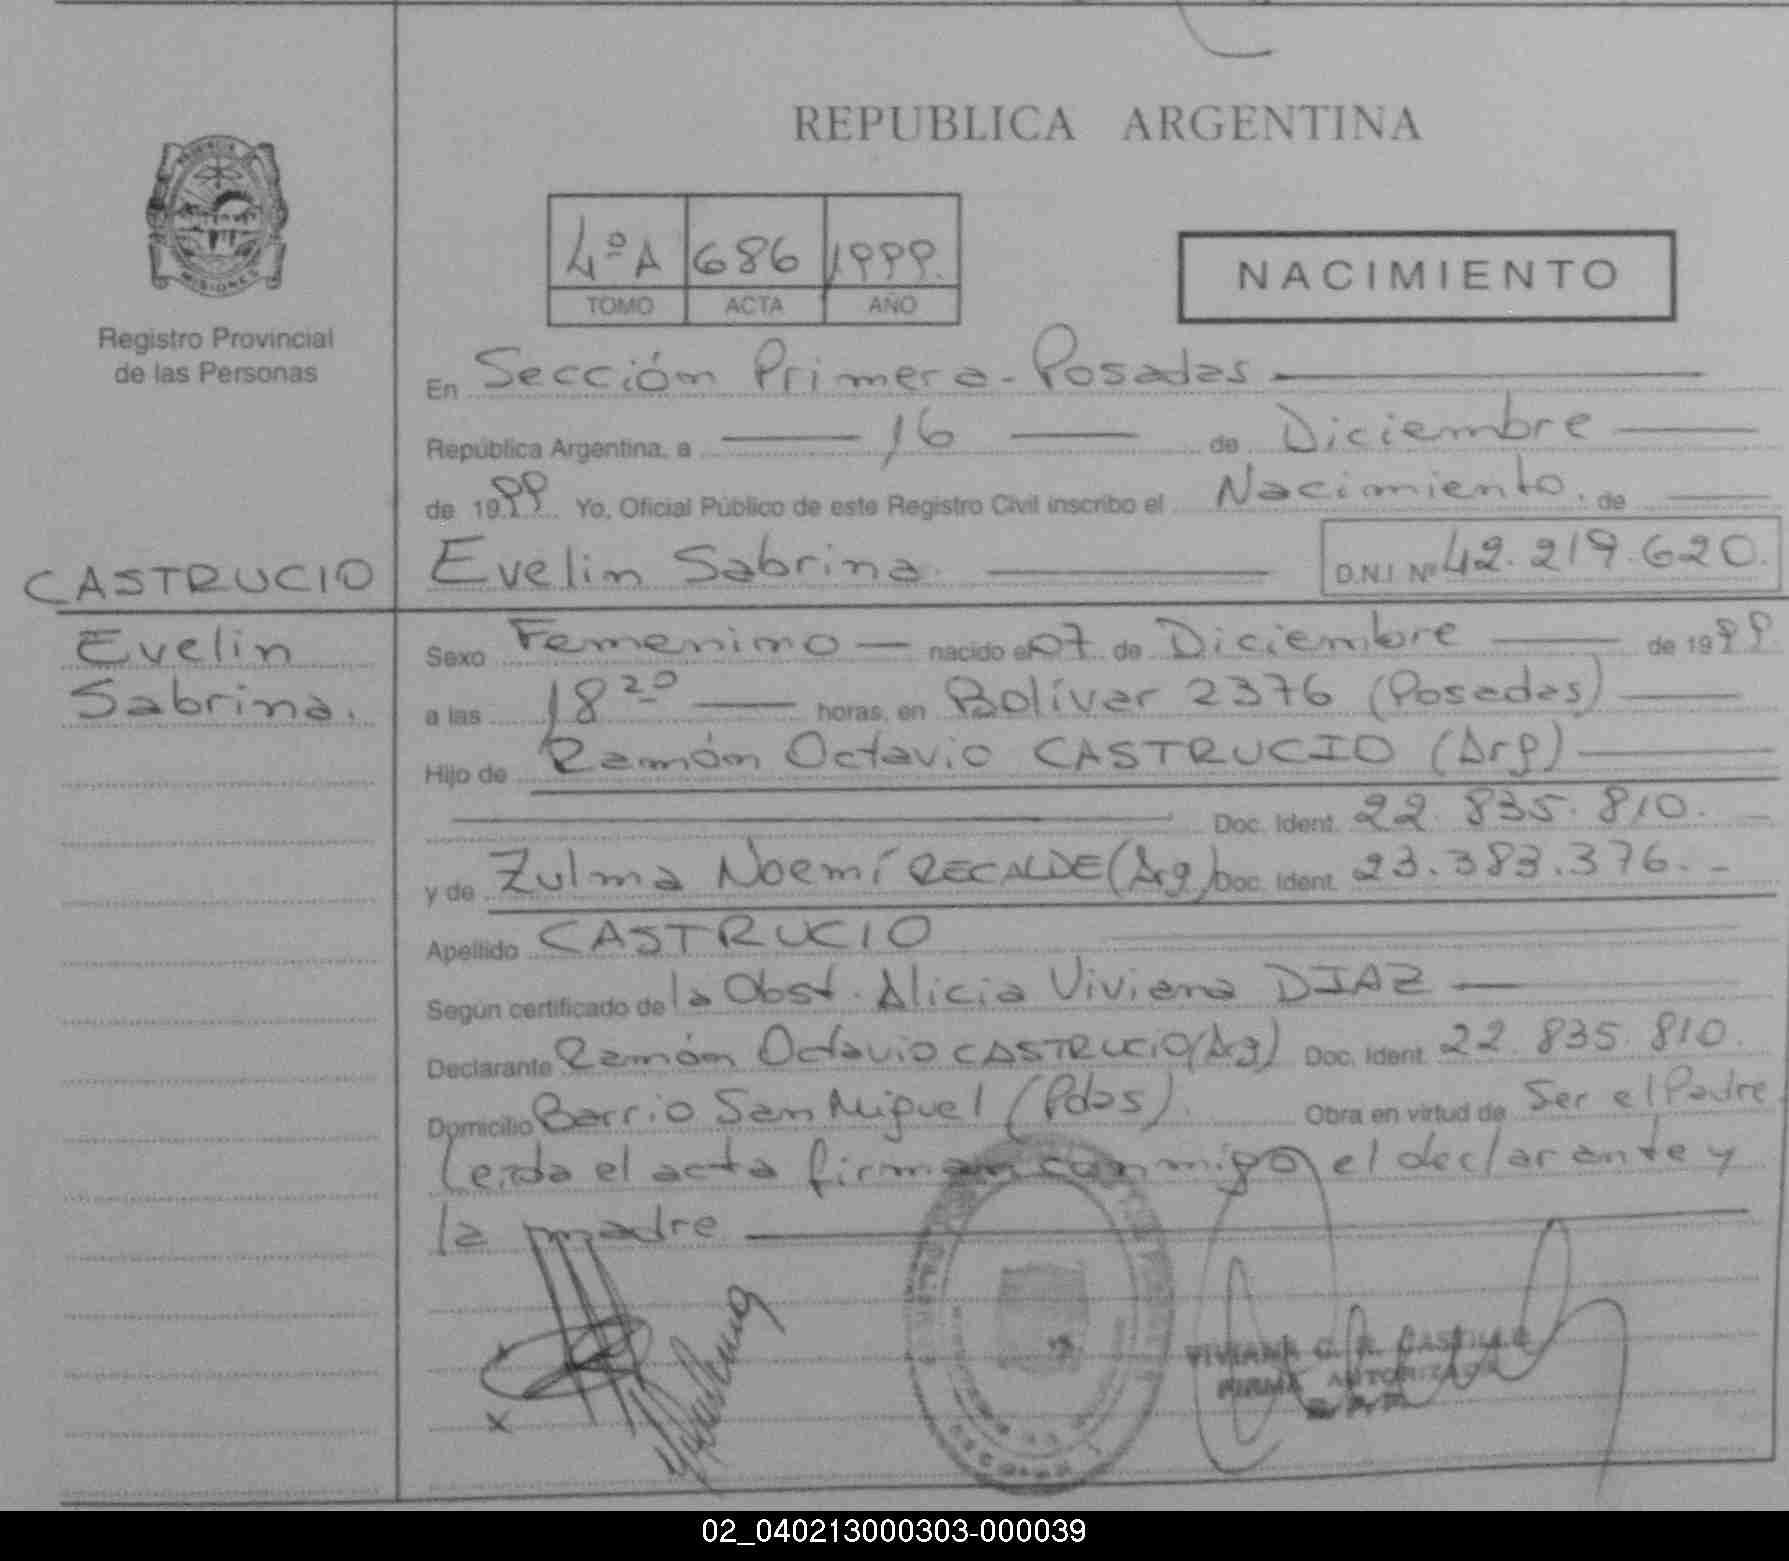 REPUBLICA ARGENTINA
PROVINCIA DE
MISIONES
Registro Provincial
de las Personas
4º A 686 1999.
TOMO ACTA AÑO
NACIMIENTO
En Sección Primera - Posadas
República Argentina, a 16 de Diciembre
de 1999 Yo, Oficial Público de este Registro Civil inscribo el Nacimiento. de
CASTRUCIO
Evelin
Sabrina.
Evelin Sabrina. D.N.I Nº 42.219.620.
Sexo Femenino nacido el 07 de Diciembre de 1999
a las 18 20 horas, en Bolívar 2376 (Posadas)
Hijo de Ramón Octavio CASTRUCIO (Arg)
Doc. Ident. 22.835.810.
y de Zulma Noemí RECALDE (Arg) Doc. Ident. 23.383.376. -
Apellido CASTRUCIO
Según certificado de la Obst. Alicia Viviana DIAZ
Declarante Ramón Octavio CASTRUCIO (Arg) Doc. Ident. 22.835.810.
Domicilio Barrio San Miguel (Pdas). Obra en virtud de Ser el Padre
Leída el acta firman conmigo el declarante y
la madre
VIVIANA C. R. CASTILLO
FIRMA AUTORIZADA
02_040213000303-000039